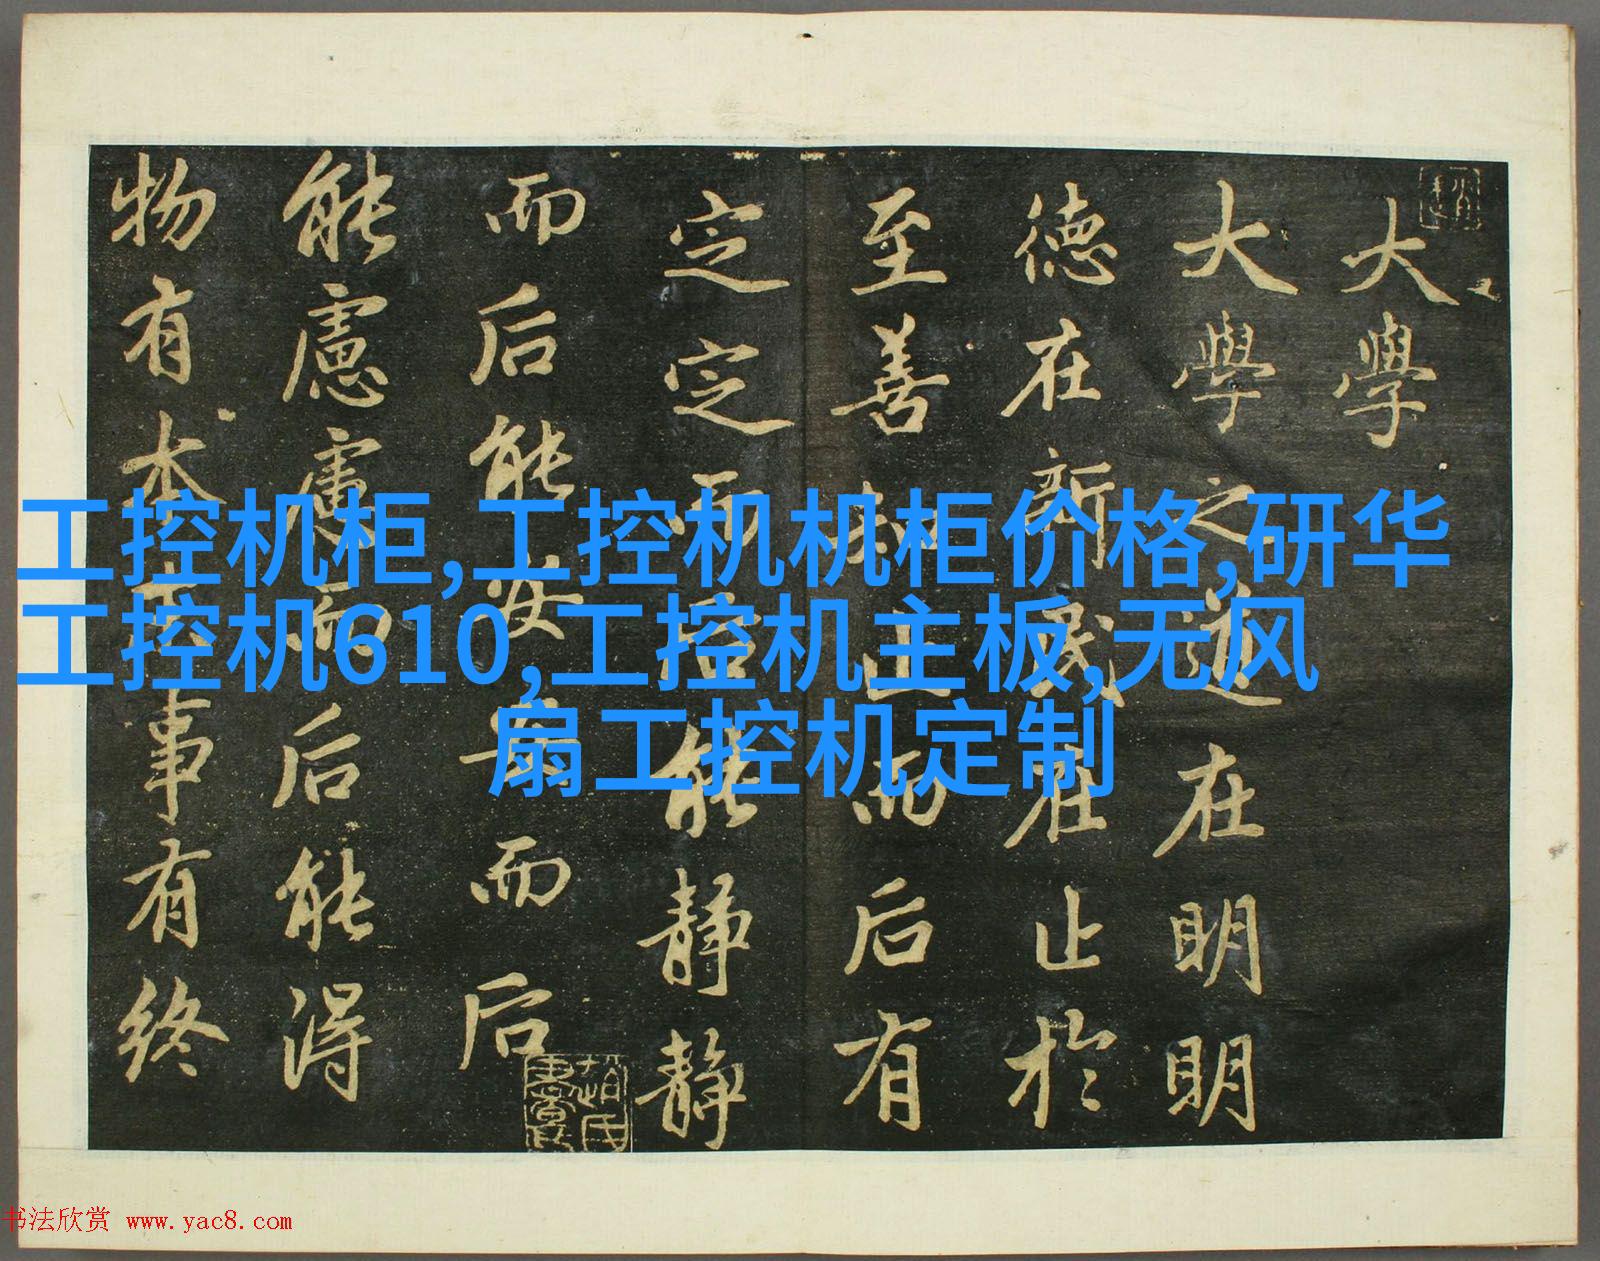 大學
大學之道在明明
德在新民在止於
至善知止而后有
定定而后能靜靜
而后能安安而后
能慮慮而后能得
物有本末事有終
工控机柜,工控机机柜价格,研华
工控机610,工控机主板,无风
扇工控机定制
书法欣赏 www.yac8.com